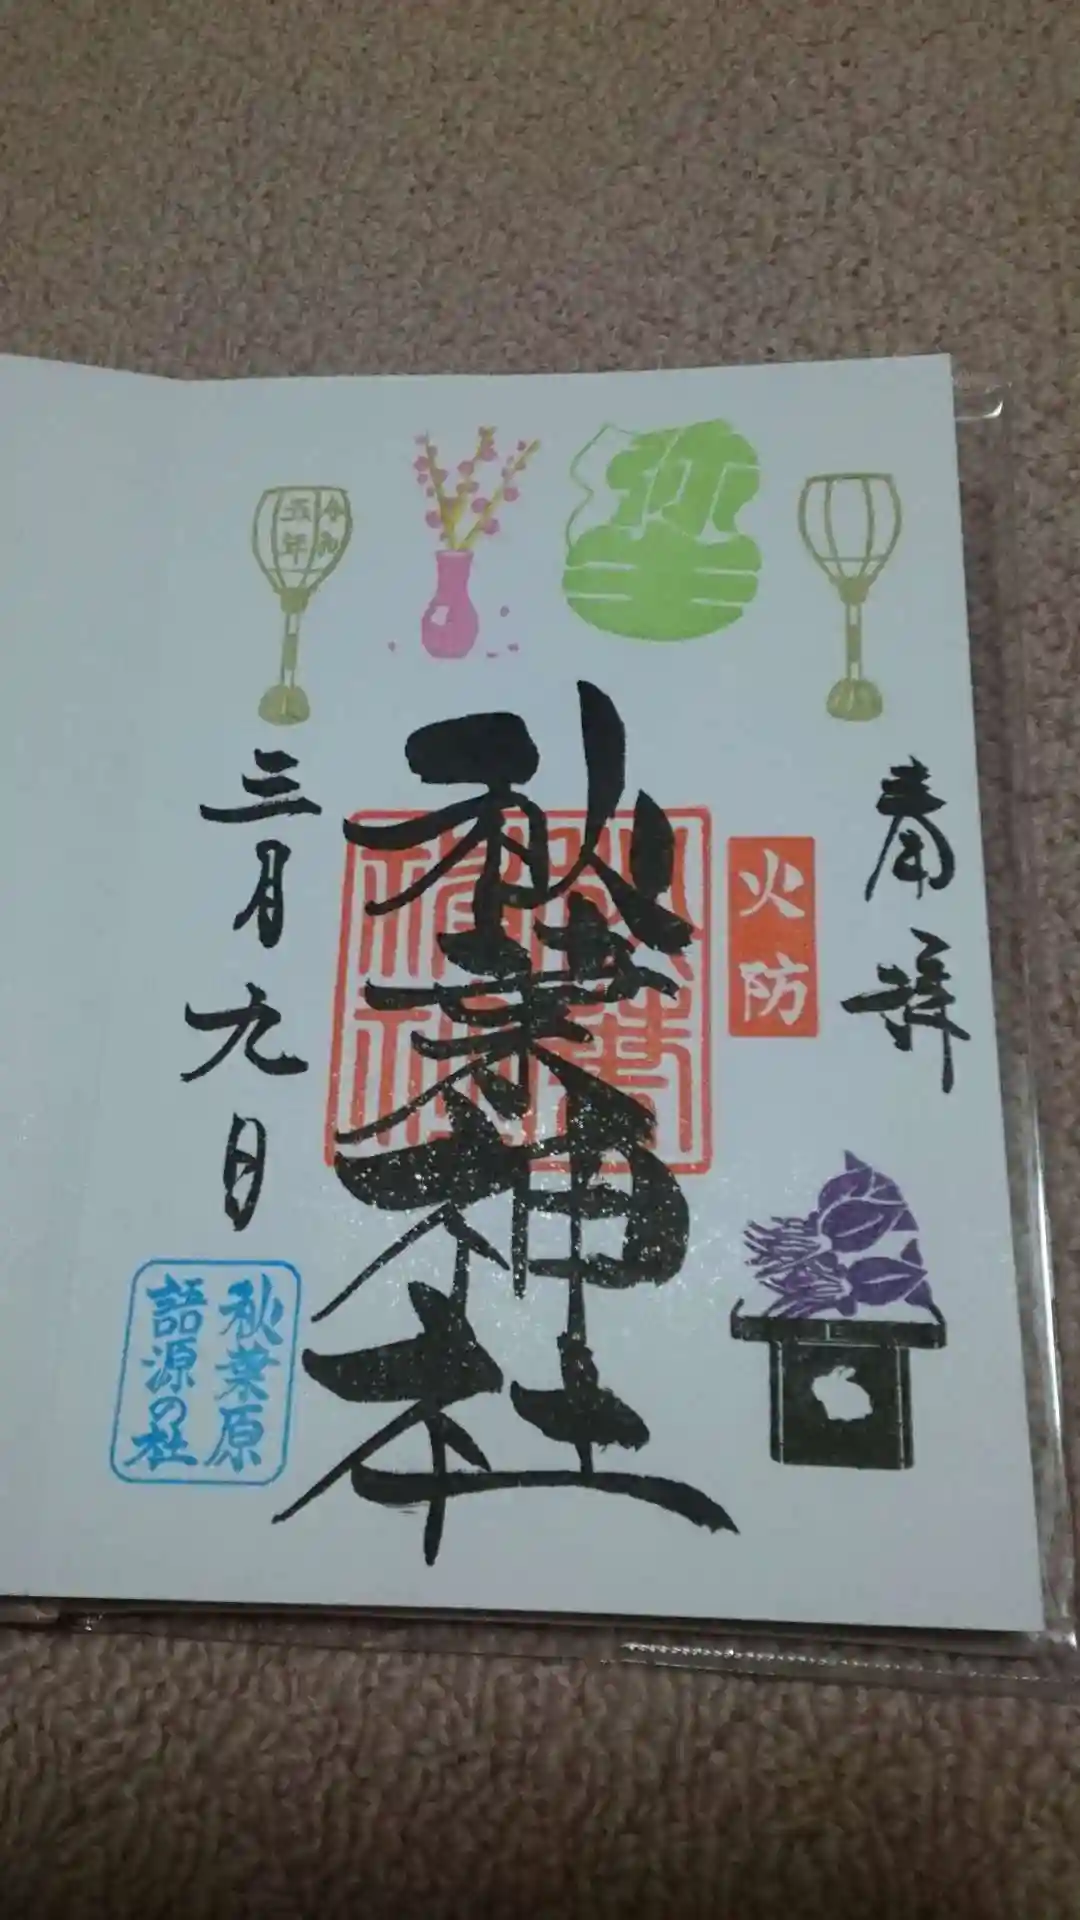 奉拝
火防
秋葉神社
秋葉
神社
令和
五年
三月九日
秋葉原
語源の社